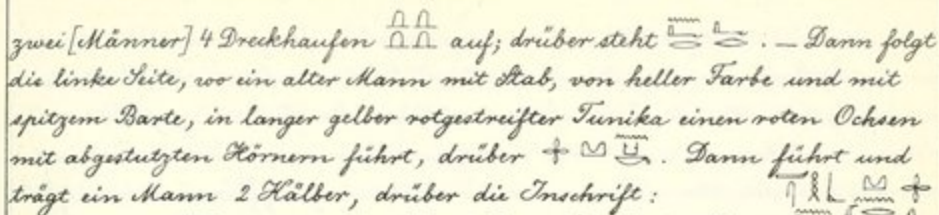 zwei [Männer] 4 Dreckhaufen auf; drüber steht . — Dann folgt
die linke Seite, wo ein alter Mann mit Stab, von heller Farbe und mit
spitzem Barte, in langer gelber rotgestreifter Tunika einen roten Ochsen
mit abgestutzten Hörnern führt, drüber . Dann führt und
trägt ein Mann 2 Kälber, drüber die Inschrift :